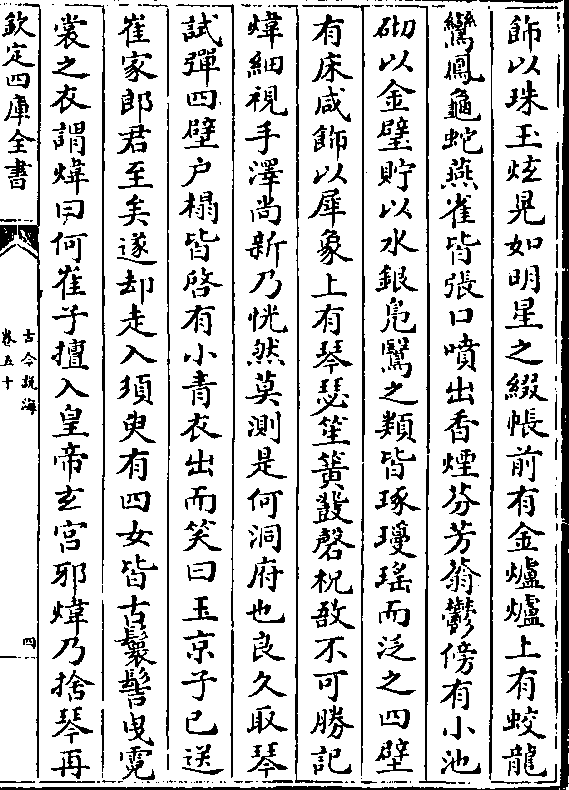 飾以珠玉炫晃如明星之綴帳前有金爐爐上有蛟龍
鸞鳳龜蛇燕雀皆張口噴出香煙芬芳蓊鬱傍有小池
砌以金璧貯以水銀鳬鷖之類皆琢瓊瑤而泛之四壁
有床咸飾以犀象上有琴瑟笙簧鼗磬柷敔不可勝記
煒細視手澤尚新乃恍然莫測是何洞府也良久取琴
試彈四壁户榻皆啓有小青衣出而笑曰玉京子已送
崔家郎君至矣遂却走入須臾有四女皆古鬟髻曳霓
裳之衣謂煒曰何崔子擅入皇帝玄宫邪煒乃捨琴再
欽定四庫全書
古今說海
卷五十
四